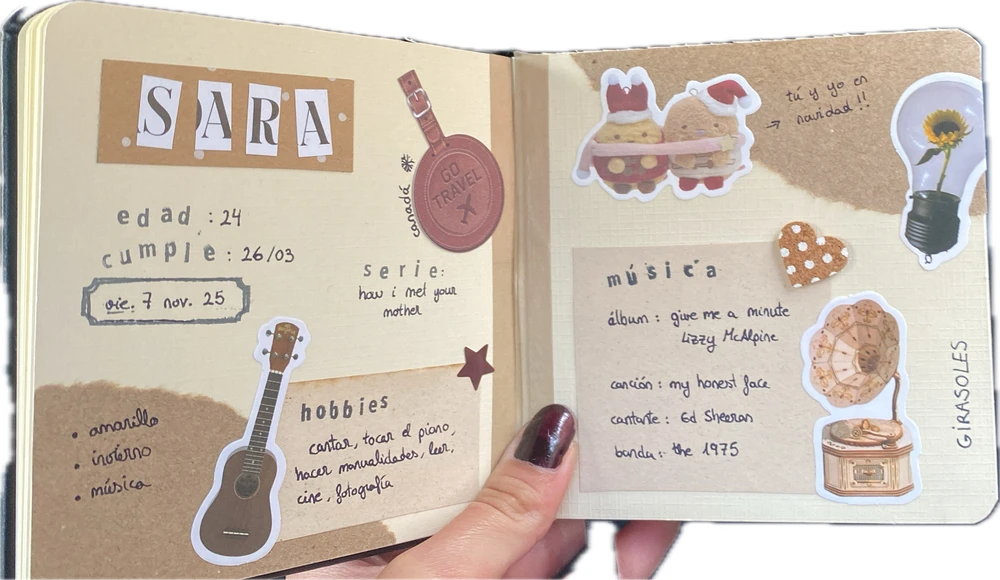 SARA
edad : 24
cumple : 26/03
vie. 7 nov. 25
GO
TRAVEL
canadá
serie:
how i met your
mother
hobbies
cantar, tocar el piano,
hacer manualidades, leer,
cine, fotografía
• amarillo
• invierno
• música
tú y yo en
navidad !!
música
álbum : give me a minute
Lizzy McAlpine
canción : my honest face
cantante : Ed Sheeran
banda : the 1975
GIRASOLES